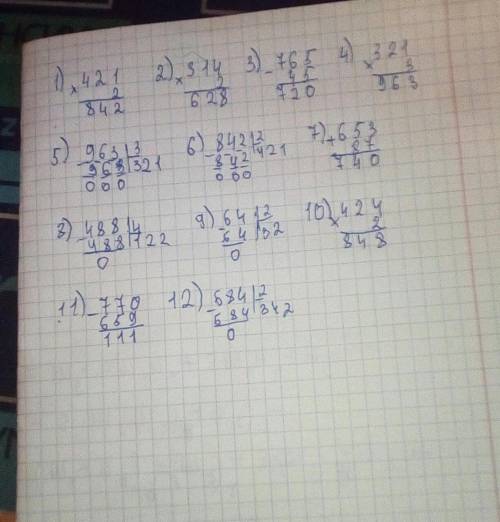 1) 421 2) 314 3) 765 4) 321
× 2 × 2 - 45 × 3
842 628 720 963
5) 963|3 6) 842|2 7) 653
- 963|321 - 842|421 + 87
000 000 740
8) 488|4 9) 64|2 10) 424
- 488|122 - 64|32 × 2
0 0 848
11) 770 12) 684|2
- 659 - 684|342
111 0